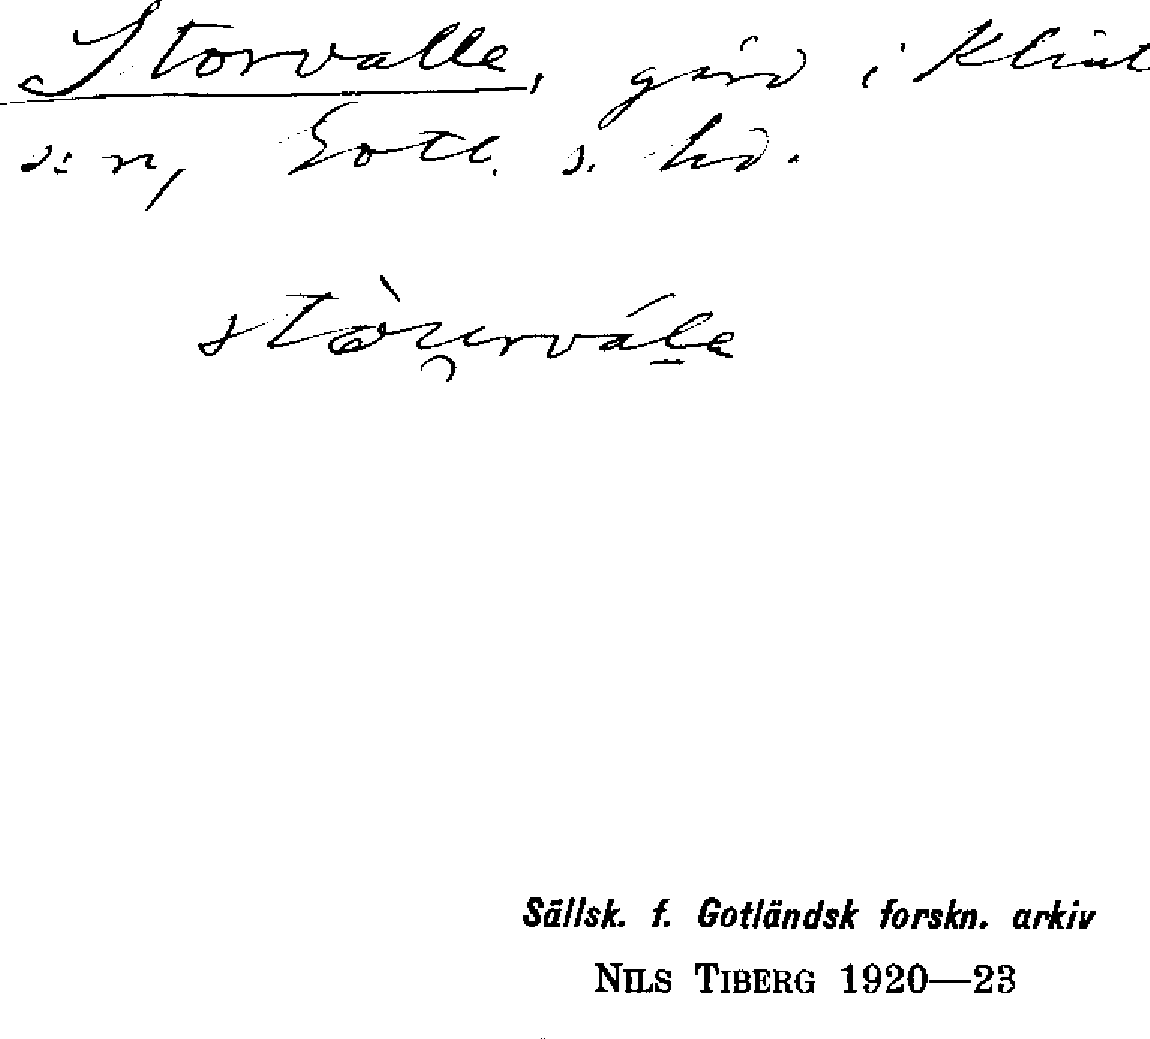 Storvalle, gård i Klint
s:n, Gotl. s. hd.
Sällsk. f. Gotländsk forskn. arkiv
NILS TIBERG 1920—23